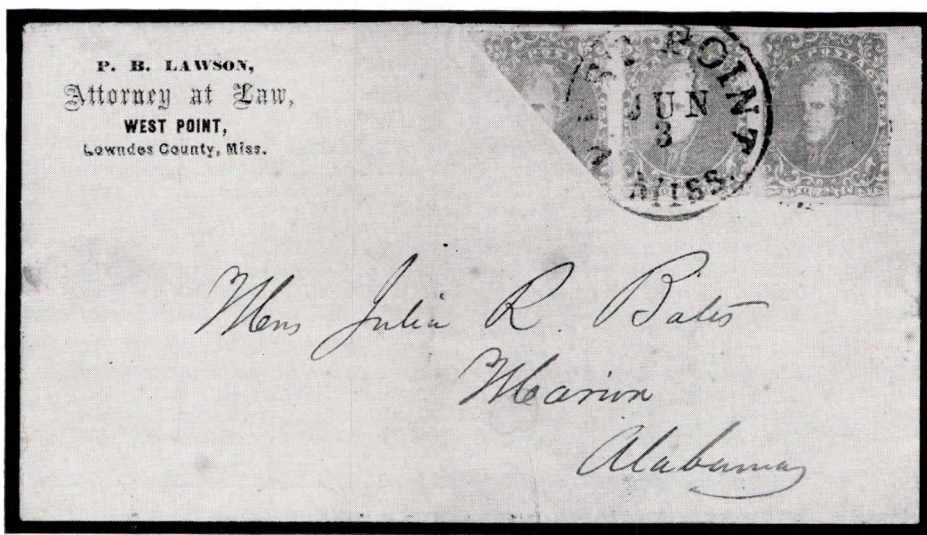 P. B. LAWSON,
Attorney at Law,
WEST POINT,
Lowndes County, Miss.
POINT
JUN
3
MISS.
POSTAGE
TWO CENTS
Mrs Julia R. Bates
Marion
Alabama